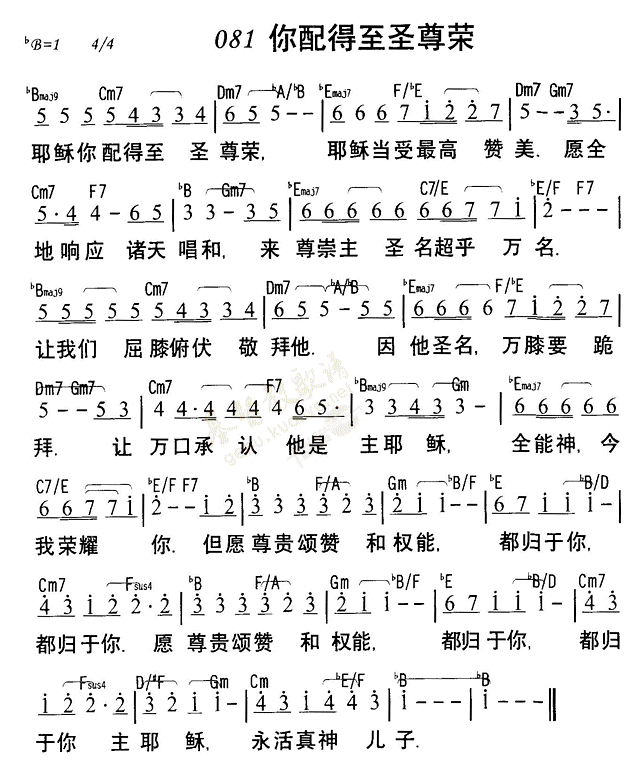 ♭B=1 4/4 081 你配得至圣尊荣
♭Bmaj9 Cm7 Dm7 ♭A/♭B ♭Emaj7 F/♭E Dm7 Gm7
5 5 5 5 4 3 3 4 | 6 5 5 - - | 6 6 6 7 i 2 2 7 | 5 - - 3 5· |
耶稣你配得至 圣 尊荣, 耶稣当受最高 赞 美. 愿全
Cm7 F7 ♭B Gm7 ♭Emaj7 C7/E ♭E/F F7
5 · 4 4 - 6 5 | 3 3 - 3 5 | 6 6 6 6 6 6 6 7 7 i | 2 - - - |
地响应 诸天 唱和, 来 尊崇主 圣 名超乎 万 名.
♭Bmaj9 Cm7 Dm7 ♭A/♭B ♭Emaj7 F/♭E
5 5 5 5 5 4 3 3 4 | 6 5 5 - 5 5 | 6 6 6 6 7 i 2 2 7 |
让我们 屈膝俯伏 敬 拜他. 因 他圣名, 万膝要 跪
Dm7 Gm7 Cm7 F7 ♭Bmaj9 Gm ♭Emaj7
5 - - 5 3 | 4 4· 4 4 4 4 6 5· | 3 3 4 3 3 - | 6 6 6 6 6
拜. 让 万口承 认 他是 主耶 稣, 全能神, 今
C7/E ♭E/F F7 ♭B F/A Gm ♭B/F ♭E ♭B/D
6 6 7 7 i | 2 - - i 2 | 3 3 3 3 2 3 | 2 i i - | 6 7 i i - |
我荣耀 你. 但愿尊贵颂赞 和权能, 都归于你,
Cm7 Fsus4 ♭B F/A Gm ♭B/F ♭E ♭B/D Cm7
4 3 i 2 2 · 2 | 3 3 3 3 2 3 | 2 i i - | 6 7 i i - | 4 3
都归于你. 愿 尊贵颂赞 和权能, 都归于你, 都归
Fsus4 D/#F Gm Cm ♭E/F ♭B ♭B
i 2 2 · 2 | 3 2 i - | 4 3 i 4 4 3 | i - - - ‖
于你 主耶 稣, 永活真神 儿子.